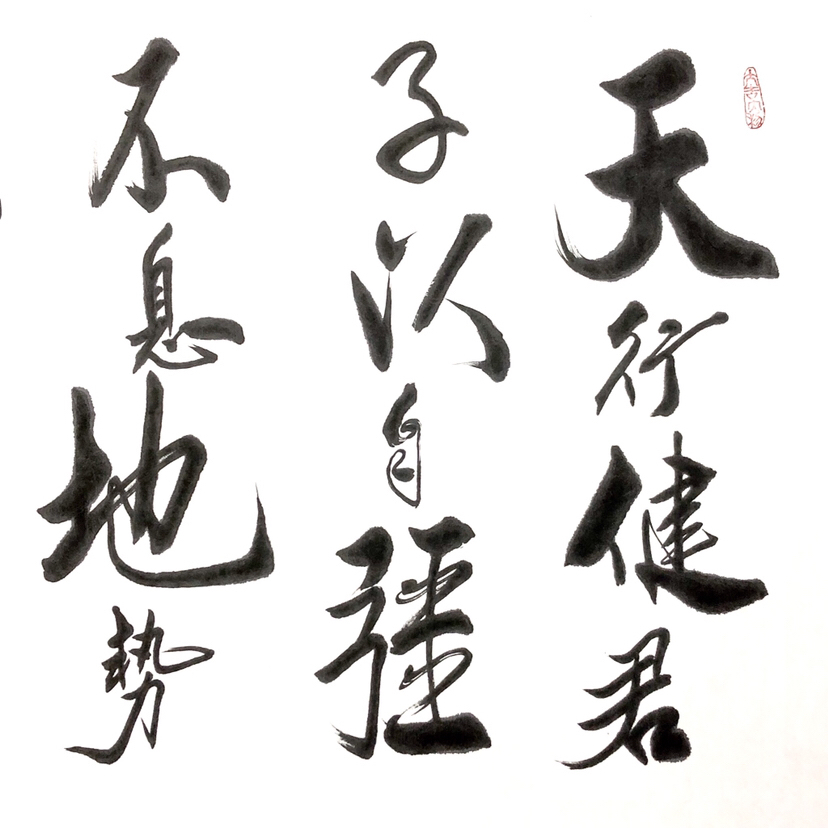 天行健君
子以自彊
不息地勢